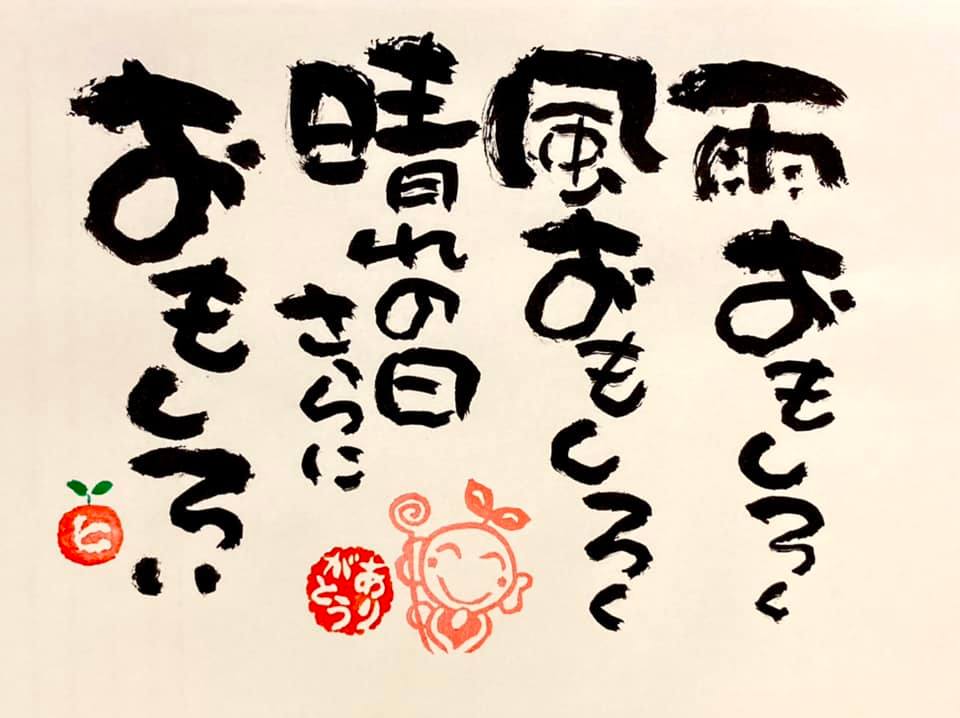 雨おもしろく
風おもしろく
晴れの日
さらに
おもしろい
ありがとう